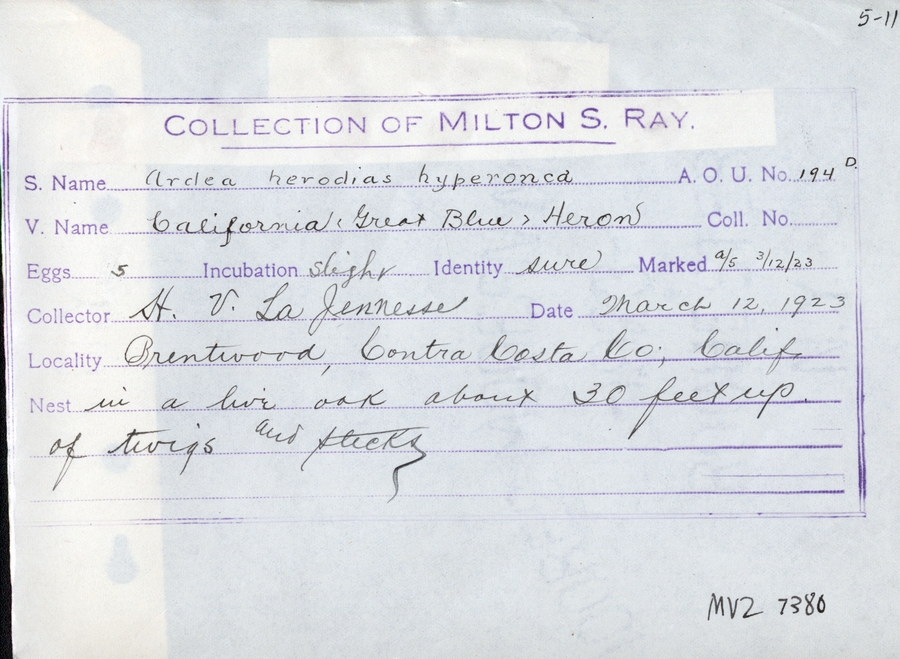 5-11
COLLECTION OF MILTON S. RAY.
S. Name Ardea herodias hyperonca A. O. U. No. 194 D.
V. Name California (Great Blue) Heron Coll. No.
Eggs 5 Incubation slight Identity sure Marked a/5 3/12/23
Collector H. V. La Jennesse Date March 12, 1923
Locality Brentwood, Contra Costa Co; Calif.
Nest in a live oak about 30 feet up.
of twigs and sticks
MVZ 7380